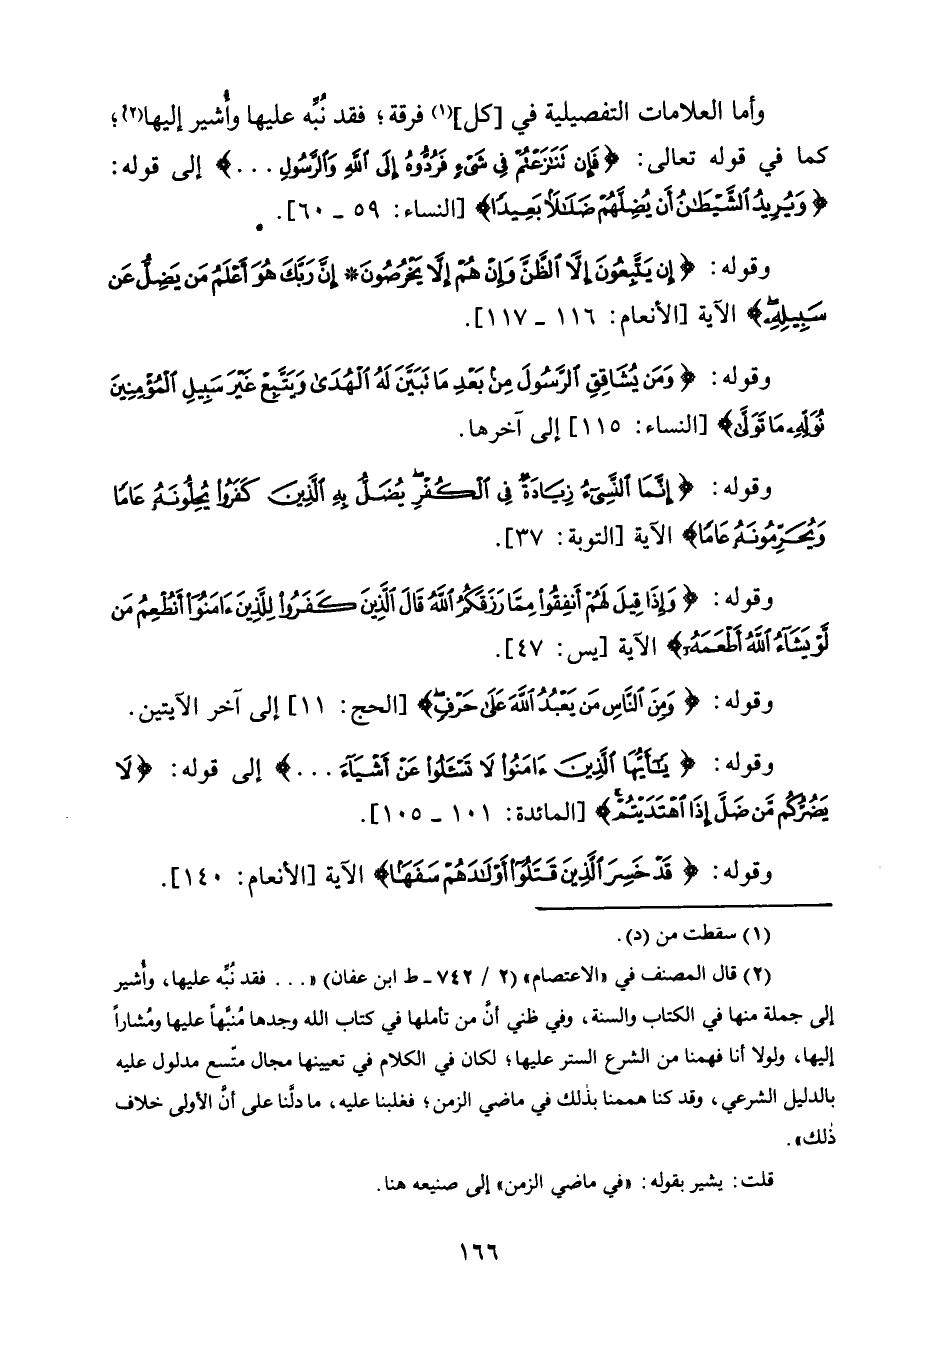 وأما العلامات التفصيلية في [كل](١) فرقة؛ فقد نُبِّه عليها وأُشير إليها(٢)؛
كما في قوله تعالى: ﴿فَإِن تَنَٰزَعۡتُمۡ فِي شَيۡءٖ فَرُدُّوهُ إِلَى ٱللَّهِ وَٱلرَّسُولِ ...﴾ إلى قوله:
﴿وَيُرِيدُ ٱلشَّيۡطَٰنُ أَن يُضِلَّهُمۡ ضَلَٰلَۢا بَعِيدٗا﴾ [النساء: ٥٩ ـ ٦٠].
وقوله: ﴿إِن يَتَّبِعُونَ إِلَّا ٱلظَّنَّ وَإِنۡ هُمۡ إِلَّا يَخۡرُصُونَ * إِنَّ رَبَّكَ هُوَ أَعۡلَمُ مَن يَضِلُّ عَن
سَبِيلِهِۦۖ﴾ الآية [الأنعام: ١١٦ ـ ١١٧].
وقوله: ﴿وَمَن يُشَاقِقِ ٱلرَّسُولَ مِنۢ بَعۡدِ مَا تَبَيَّنَ لَهُ ٱلۡهُدَىٰ وَيَتَّبِعۡ غَيۡرَ سَبِيلِ ٱلۡمُؤۡمِنِينَ
نُوَلِّهِۦ مَا تَوَلَّىٰ﴾ [النساء: ١١٥] إلى آخرها.
وقوله: ﴿إِنَّمَا ٱلنَّسِيٓءُ زِيَادَةٞ فِي ٱلۡكُفۡرِۖ يُضَلُّ بِهِ ٱلَّذِينَ كَفَرُواْ يُحِلُّونَهُۥ عَامٗا
وَيُحَرِّمُونَهُۥ عَامٗا﴾ الآية [التوبة: ٣٧].
وقوله: ﴿وَإِذَا قِيلَ لَهُمۡ أَنفِقُواْ مِمَّا رَزَقَكُمُ ٱللَّهُ قَالَ ٱلَّذِينَ كَفَرُواْ لِلَّذِينَ ءَامَنُوٓاْ أَنُطۡعِمُ مَن
لَّوۡ يَشَآءُ ٱللَّهُ أَطۡعَمَهُۥٓ﴾ الآية [يس: ٤٧].
وقوله: ﴿وَمِنَ ٱلنَّاسِ مَن يَعۡبُدُ ٱللَّهَ عَلَىٰ حَرۡفٖۖ﴾ [الحج: ١١] إلى آخر الآيتين.
وقوله: ﴿يَٰٓأَيُّهَا ٱلَّذِينَ ءَامَنُواْ لَا تَسۡـَٔلُواْ عَنۡ أَشۡيَآءَ ...﴾ إلى قوله: ﴿لَا
يَضُرُّكُم مَّن ضَلَّ إِذَا ٱهۡتَدَيۡتُمۡۚ﴾ [المائدة: ١٠١ ـ ١٠٥].
وقوله: ﴿قَدۡ خَسِرَ ٱلَّذِينَ قَتَلُوٓاْ أَوۡلَٰدَهُمۡ سَفَهَۢا﴾ الآية [الأنعام: ١٤٠].
(١) سقطت من (د).
(٢) قال المصنف في «الاعتصام» (٢ / ٧٤٢ ـ ط ابن عفان) «... فقد نُبِّه عليها، وأُشير
إلى جملة منها في الكتاب والسنة، وفي ظني أنَّ من تأملها في كتاب الله وجدها مُنبَّهاً عليها ومُشاراً
إليها، ولولا أنا فهمنا من الشرع الستر عليها؛ لكان في الكلام في تعيينها مجال متّسع مدلول عليه
بالدليل الشرعي، وقد كنا هممنا بذٰلك في ماضي الزمن؛ فغلبنا عليه، ما دلَّنا على أنَّ الأولى خلاف
ذٰلك».
قلت: يشير بقوله: «في ماضي الزمن» إلى صنيعه هنا.
١٦٦